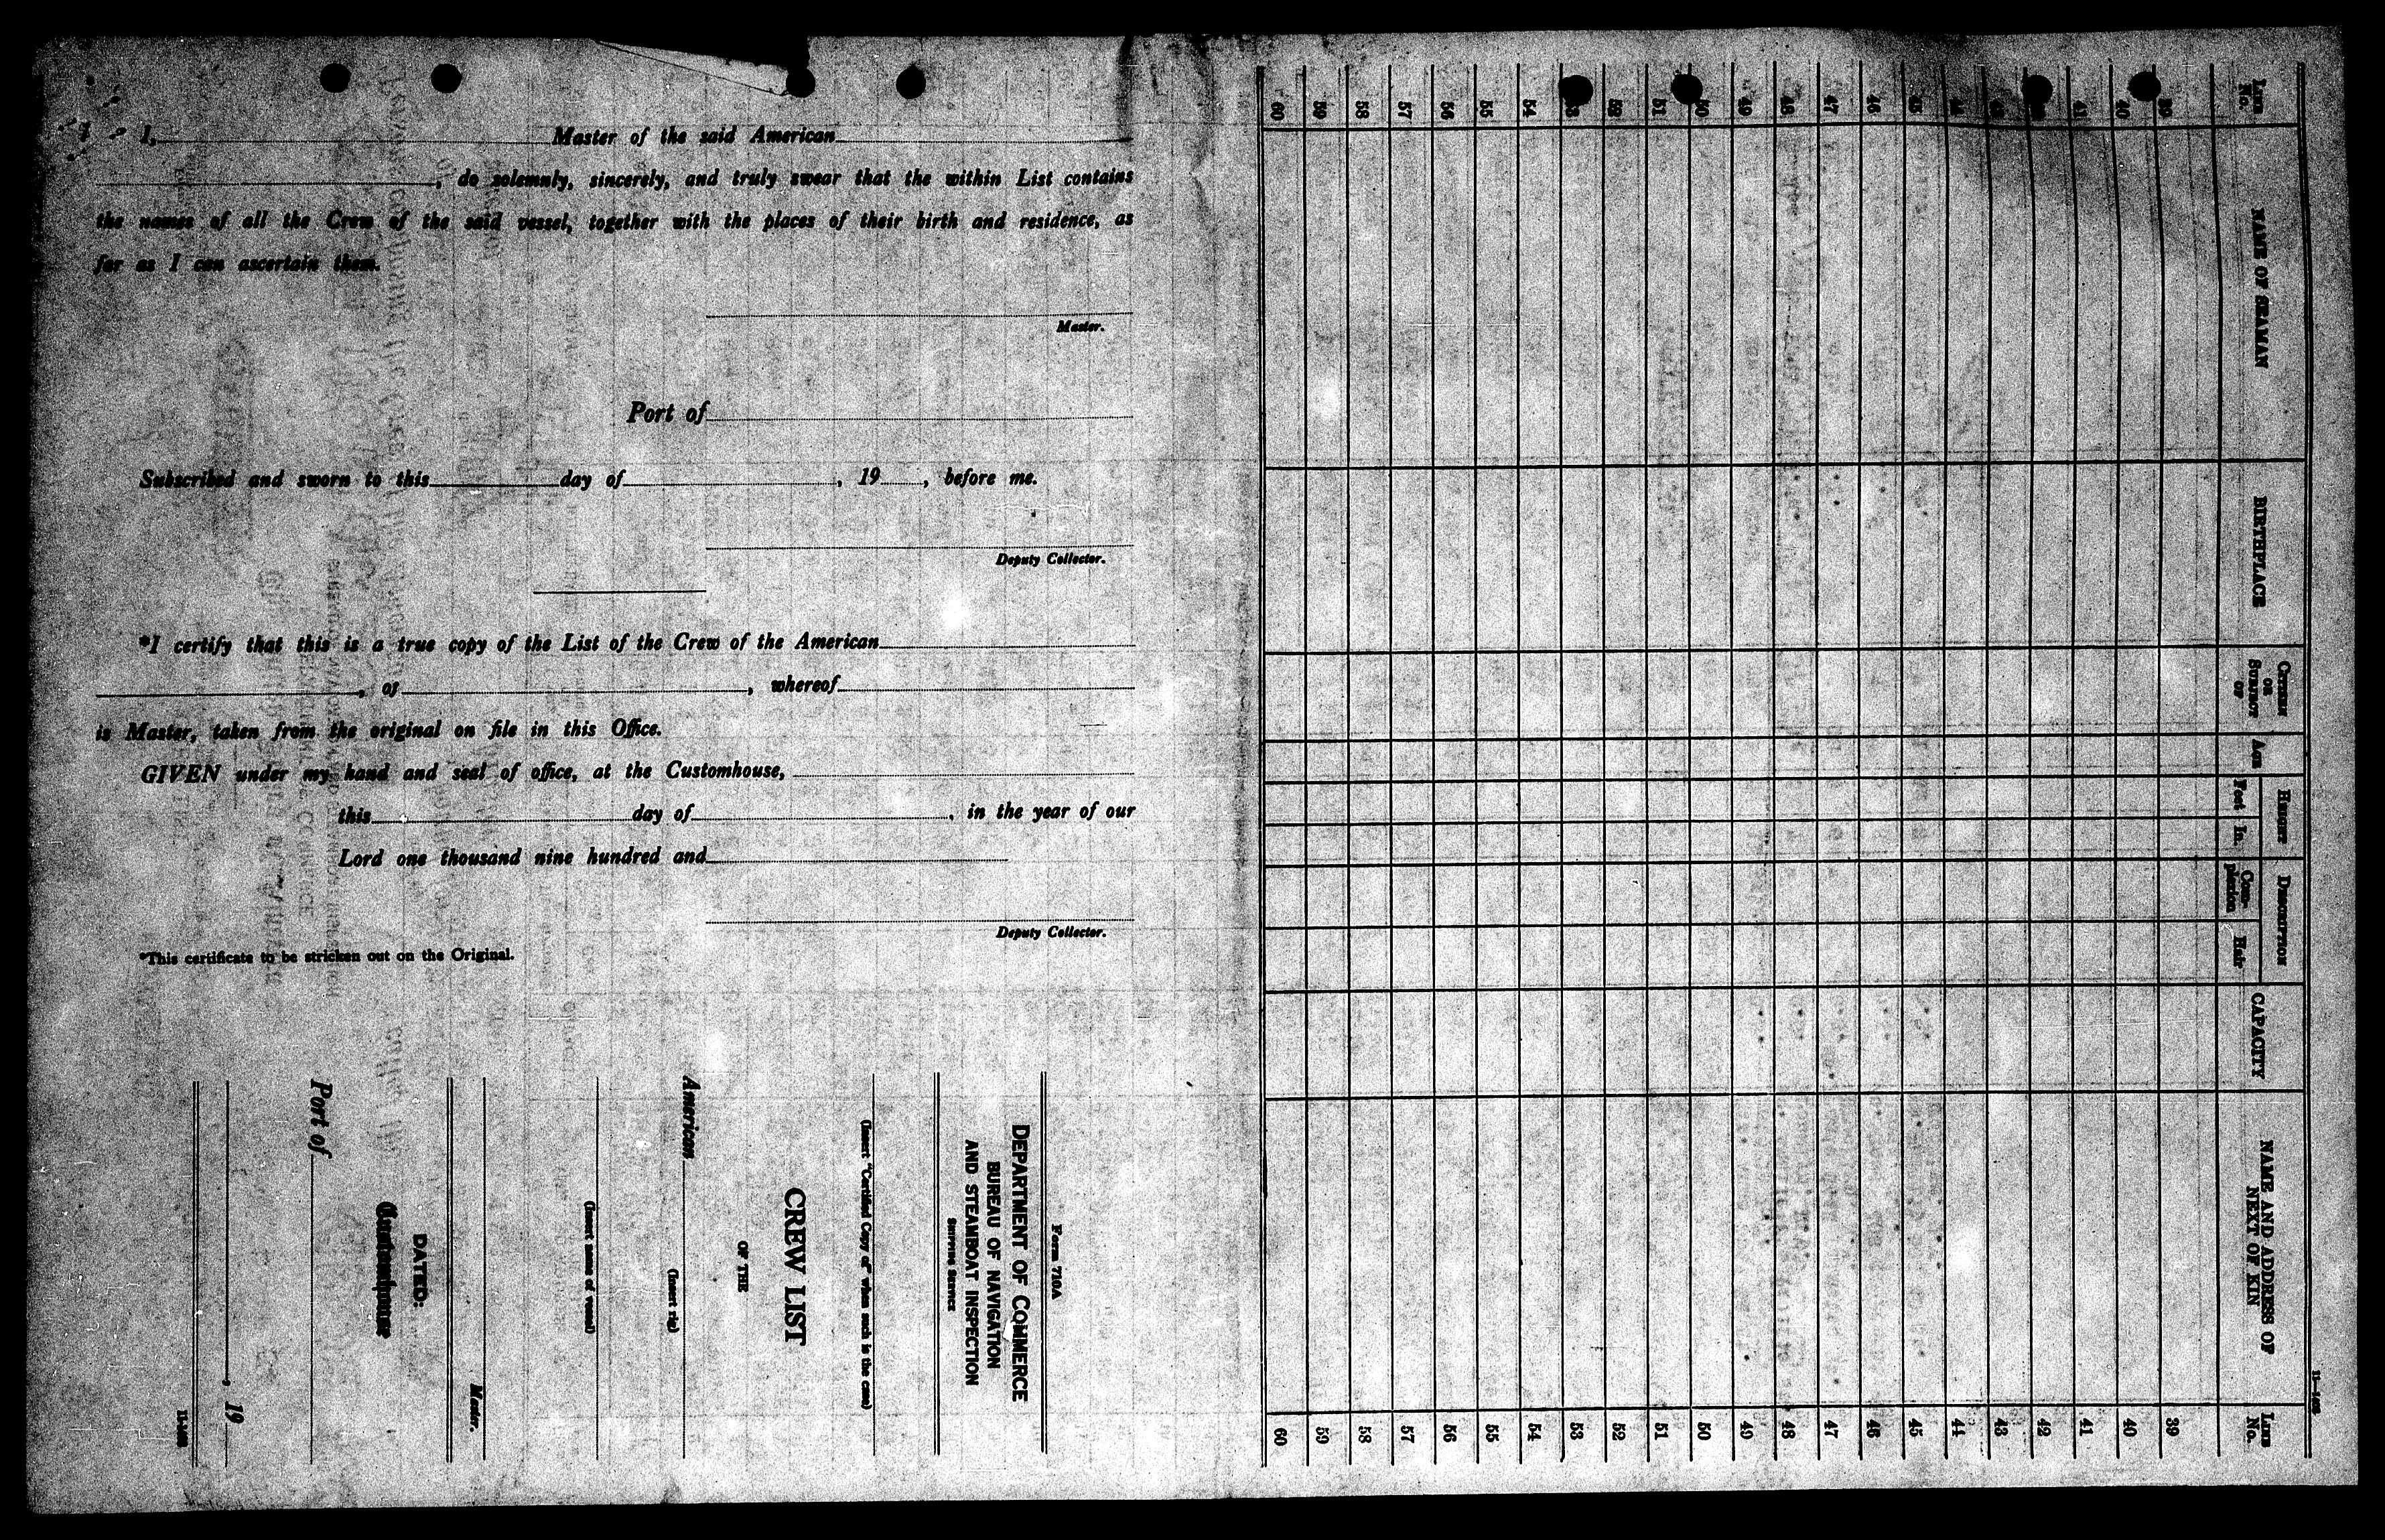 I, Master of the said American
, do solemnly, sincerely, and truly swear that the within List contains
the names of all the Crew of the said vessel, together with the places of their birth and residence, as
far as I can ascertain them.
Master.
Port of
Subscribed and sworn to this day of , 19 , before me.
Deputy Collector.
*I certify that this is a true copy of the List of the Crew of the American
, of , whereof
is Master, taken from the original on file in this Office.
GIVEN under my hand and seal of office, at the Customhouse,
this day of , in the year of our
Lord one thousand nine hundred and
Deputy Collector.
*This certificate to be stricken out on the Original.
Form 710A
DEPARTMENT OF COMMERCE
BUREAU OF NAVIGATION
AND STEAMBOAT INSPECTION
SHIPPING SERVICE
(Insert "Certified Copy of" when such is the case)
CREW LIST
OF THE
American
(Insert rig)
(Insert name of vessel)
Master.
DATED:
Customhouse
Port of
, 19
LINE No. NAME OF SEAMAN BIRTHPLACE CITIZEN OR SUBJECT OF AGE HEIGHT Feet In. DESCRIPTION Complexion Hair CAPACITY NAME AND ADDRESS OF NEXT OF KIN LINE No.
39 39
40 40
41 41
42
43 43
44 44
45 45
46 46
47 47
48 48
49 49
50 50
51 51
52 52
53 53
54 54
55 55
56 56
57 57
58 58
59 59
60 60